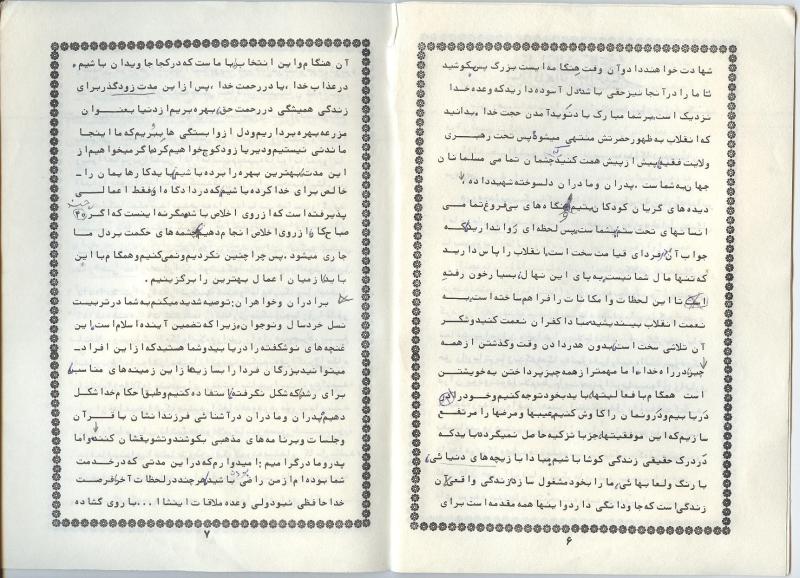 شهادت خواهند داد و آن وقت هنگامه ایست بزرگ پس بکوشید
تا ما را در آنجا نیز حقی باشد دل آسوده دارید که وعده خدا
نزدیک است بر شما مبارک باد نوید آمدن حجت خدا. بدانید
که انقلاب به ظهور حضرتش منتهی میشود پس تحت رهبری
ولایت فقیه بیش از پیش همت کنید چشمان تمامی مسلمانان
جهان به شماست. پدران و مادران دلسوخته شهید داده،
دیده های گریان کودکان یتیم نگاه های بی فروغ تمامی
انسانهای تحت ستم بشماست پس لحظه ای روا ندارید که
جواب آن فردای قیامت سخت است انقلاب را پاس دارید
که تنها مال شما نیست به پای این نهال بسیار خون رفته
است تا این لحظات و امکانات را فراهم ساخته است به
نعمت انقلاب بیندیشید مبادا کفران نعمت کنید و شکر
آن تلاشی سخت است بدون هدر دادن وقت و گذشتن از همه
چیز در راه خدا. اما مهمتر از همه چیز پرداختن به خویشتن
است همگام با فعالیتها باید بخود توجه کنیم و خود را
دریابیم و درونمان را کاوش کنیم عیبها و مرضها را مرتفع
سازیم که این موفقیتها جز با تزکیه حاصل نمیگردد باید که
در درک حقیقی زندگی کوشا باشیم مبادا بازیچه های دنیائی
با رنگ و لعابهائی ما را بخود مشغول سازد زندگی واقعی آن
زندگی است که جاودانگی دارد و اینها همه مقدمه است برای
۶
آن هنگام و این انتخاب با ماست که در کجا جاویدان باشیم.
در عذاب خدا، یا در رحمت خدا، پس از این مدت زودگذر برای
زندگی همیشگی در رحمت حق، بهره بریم از دنیا بعنوان
مزرعه بهره برداریم و دل از وابستگی ها ببریم که ما اینجا
ماندنی نیستیم و دیر یا زود کوچ خواهیم کرد اگر میخواهیم از
این مدت بهترین بهره را برده باشیم باید کارهایمان را
خالص برای خدا کرده باشیم که در دادگاه او فقط اعمالی
پذیرفته است که از روی اخلاص باشد مگر نه اینست که اگر ۴۰
صباح کار از روی اخلاص انجام دهیم چشمه های حکمت بر دل ما
جاری میشود. پس چرا چنین نکردیم و نمی کنیم و همگام با این
باید از میان اعمال بهترین را برگزینیم.
برادران و خواهران: توصیه شدید میکنم به شما در تربیت
نسل خردسال و نوجوان، زیرا که تضمین آینده اسلام است این
غنچه های نوشکفته را دریابید و شما هستید که از این افراد
میتوانید بزرگان فردا را بسازید از این زمینه های مناسب
برای رشد که شکل نگرفته استفاده کنیم و طبق احکام خدا شکل
دهیم پدران و مادران در آشنائی فرزندانشان با قرآن
و جلسات و برنامه های مذهبی بکوشند و تشویقشان کنند و اما
پدر و مادر گرامیم: امیدوارم که در این مدتی که در خدمت
شما بوده ام از من راضی باشید هر چند در لحظات آخر فرصت
خداحافظی نبود ولی وعده ملاقات انشا ا... با روی گشاده
۷